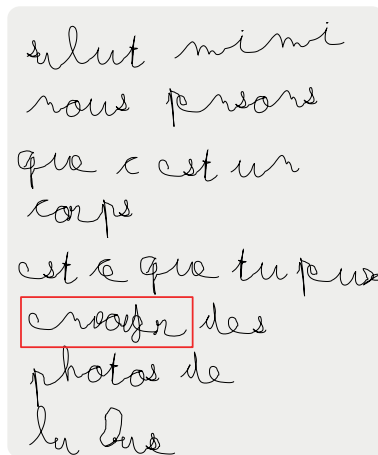 salut mimi
nous pensons
que c est un
corps
est ce que tu peux
des
photos de
la bus